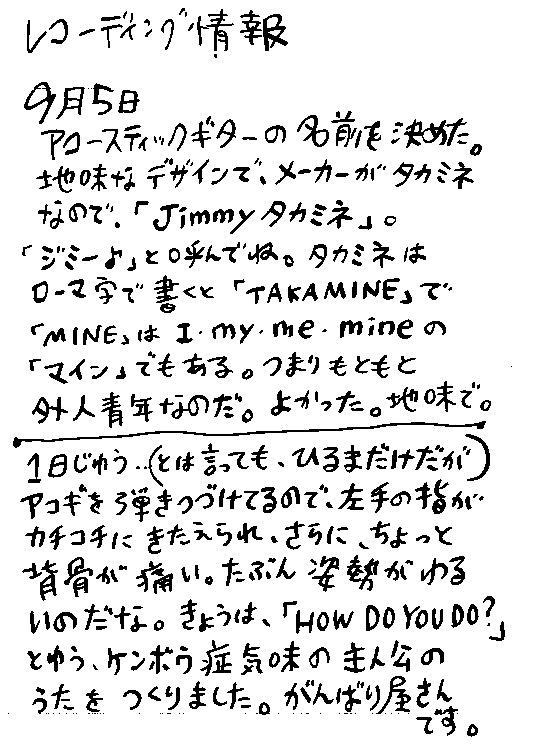 レコーディング情報
9月5日
アコースティックギターの名前を決めた。
地味なデザインで、メーカーがタカミネ
なので、「Jimmyタカミネ」。
「ジミーよ」と呼んでね。タカミネは
ローマ字で書くと「TAKAMINE」で
「MINE」は I・my・me・mineの
「マイン」でもある。つまりもともと
外人青年なのだ。よかった。地味で。
1日じゅう‥(とは言っても、ひるまだけだが)
アコギを弾きつづけてるので、左手の指が
カチコチにきたえられ、さらに、ちょっと
背骨が痛い。たぶん姿勢がわる
いのだな。きょうは、「HOW DO YOU DO?」
とゆう、ケンボウ症気味の主人公の
うたをつくりました。がんばり屋さん
です。